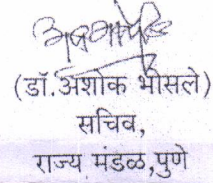 (डॉ.अशोक भोसले)
सचिव,
राज्य मंडळ,पुणे